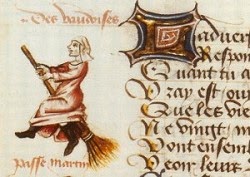 Des vaudoises
Passe martin
L aduers
Respon
Quant tu d
Vray est qui
Que les vie
Ne vinst
Vont ensem
Veoir leurs